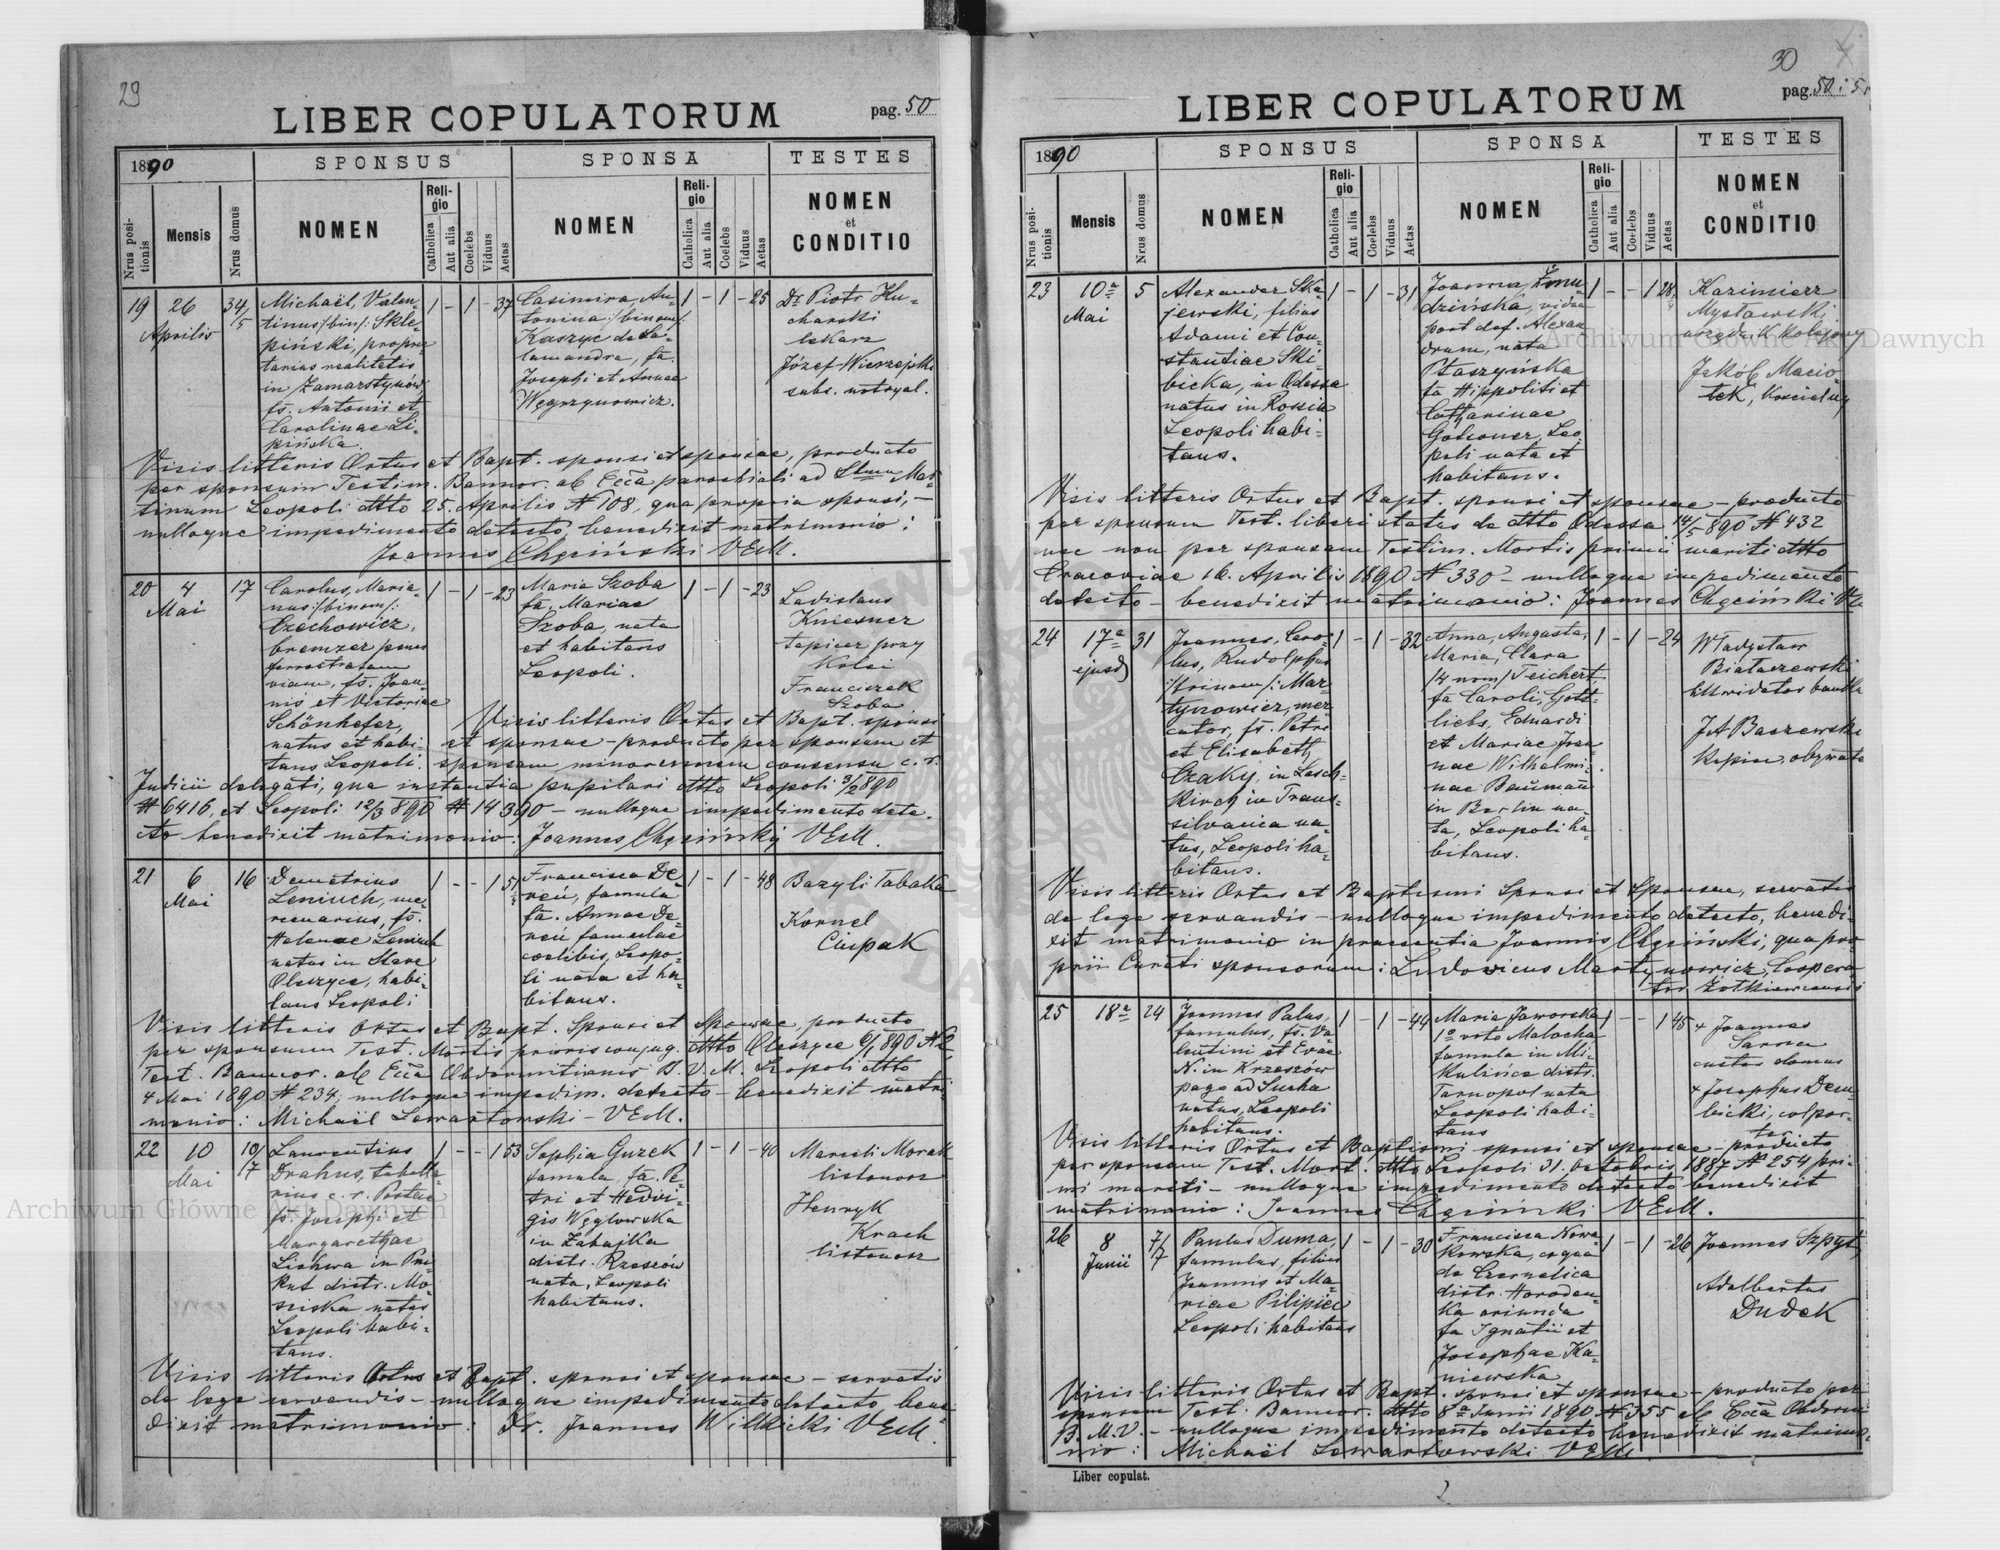 29
LIBER COPULATORUM
pag. 50
1890
SPONSUS
SPONSA
TESTES
Nrus positionis
Mensis
Nrus domus
NOMEN
Religio
Catholica
Aut alia
Coelebs
Viduus
Aetas
NOMEN
Religio
Catholica
Aut alia
Coelebs
Viduus
Aetas
NOMEN
et
CONDITIO
19
26
Aprilis
34/5
Michaël, Valen-
tinus /:bin:/ Skle-
piński, proprie-
tarius realitatis
in Zamarstynów
fs. Antonii et
Carolinae Li-
pińska.
1 - 1 - 37
Casimira, An-
tonina /:binom:/
Kaszyc de Sa-
lamandra, fa.
Josephi et Annae
Węgrzynowicz.
1 - 1 - 25
Dr Piotr Ku-
charski
lekarz
Józef Wierzejski
subs. notryal.
Visis litteris Ortus et Bapt. sponsi et sponsae, producto
per sponsum Testim. Bannor. ab Ecca parochiali ad Stum Mar-
tinum Leopoli dtto 25. Aprilis № 108, qua propria sponsi, -
nulloque impedimento detecto, benedixit matrimonio:
Joannes Chęciński VEM.
20
4
Mai
17
Carolus, Maria-
nus /:binom:/
Czechowicz,
bremzer penes
ferrostratam
viam, fs. Joan-
nis et Victoriae
Schönhofer,
natus et habi-
tans Leopoli.
1 - 1 - 23
Maria Szoba
fa. Mariae
Szoba, nata
et habitans
Leopoli.
1 - 1 - 23
Ladislaus
Kniesner
tapicer przy
Kolei
Franciszek
Szoba
Visis litteris Ortus et Bapt. sponsi
et sponsae - producto per sponsum et
sponsam minorennem consensu c. r.
Judicii delegati, qua instantia pupilari dtto Leopoli 3/2 890
№ 6416, et Leopoli 12/3 890 № 14390 - nulloque impedimento dete-
cto benedixit matrimonio: Joannes Chęciński VEM.
21
6
Mai
16
Demetrius
Leniuch, mer-
cenarius, fs.
Helenae Leniuch
natus in Stare
Oleszyce, habi-
tans Leopoli
1 - - 1 51
Francisca De-
reń, famula
fa. Annae De-
reń famulae
coelibis, Leopo-
li nata et ha-
bitans.
1 - 1 - 48
Bazyli Tabaka
Kornel
Ciupak
Visis litteris Ortus et Bapt. Sponsi et Sponsae, producto
per sponsum Test. Mortis prioris conjug. dtto Oleszyce 6/1 890 № 2,
Test. Bannor. ab Ecca Obdormitionis B. V. M. Leopoli dtto
4 Mai 1890 № 234, nulloque impedim. detecto - benedixit matri-
monio: Michaël Lewartowski - VEM.
22
10
Mai
10/7
Laurentius
Drahus, tabella-
rius c. r. Postae
fs. Josephi et
Margarethae
Lichwa in
distr. Mo-
sciska natus
Leopoli habi-
tans.
1 - - 1 53
Sophia Guzek
famula, fa. Pe-
tri et Hedvi-
gis Węglowska
in Zabajka
distr. Rzeszów
nata, Leopoli
habitans.
1 - 1 - 40
Marceli Morak
listonosz
Henryk
Krach
listonosz
Visis litteris Ortus et Bapt. sponsi et sponsae - servatis
de lege servandis - nulloque impedimento detecto, bene-
dixit matrimonio: Dr. Joannes Wilkicki VEM.
30
LIBER COPULATORUM
pag. 50 i 51
1890
SPONSUS
SPONSA
TESTES
Nrus positionis
Mensis
Nrus domus
NOMEN
Religio
Catholica
Aut alia
Coelebs
Viduus
Aetas
NOMEN
Religio
Catholica
Aut alia
Coelebs
Viduus
Aetas
NOMEN
et
CONDITIO
23
10a
Mai
5
Alexander Ska-
jewski, filius
Adami et Con-
stantiae Ski-
bicka, in Odessa
natus in Rossia
Leopoli habi-
tans.
1 - 1 - 31
Joanna Żmu-
dzińska, vidua
post def. Alexan-
drum, nata
Ptaszyńska
fa Hippoliti et
Catharinae
Leo-
poli nata et
habitans.
1 - - 1 28
Kazimierz
Mysławski
urzędnik kolejowy
Jakób Macio-
łek, Kościelny
Visis litteris Ortus et Bapt. sponsi et sponsae - producto
per sponsum Test. liberi status de dtto Odessa 14/5 890 № 432
nec non per sponsam Testim. Mortis primi mariti dtto
Cracoviae 16. Aprilis 1890 № 330 - nulloque impedimento
detecto - benedixit matrimonio: Joannes Chęciński VEM
24
17a
ejusd
31
Joannes, Caro-
lus, Rudolphus
/:trinom:/ Mar-
tynowicz, mer-
cator, fs. Petri
et Elisabeth
Czaky, in Lesch-
kirch in Trans-
silvania na-
tus, Leopoli ha-
bitans.
1 - 1 - 32
Anna, Augusta,
Maria, Clara
/4 nom/ Teichert
fa Caroli, Gott-
liebs, Eduardi
et Mariae Joan-
nae Wilhelmi-
nae Baumann
in Berlin na-
ta, Leopoli ha-
bitans.
1 - 1 - 24
Władysław
Białaczewski
Likwidator banku
J A Baczewski
Kupiec, obywatel
Visis litteris Ortus et Baptismi Sponsi et Sponsae, servatis
de lege servandis - nulloque impedimento detecto, benedi-
xit matrimonio in praesentia Joannis Chęciński, qua pro-
prii Curati sponsorum: Ludovicus Martynowicz, Coopera-
tor Zołkiewiensis
25
18a
24
Joannes Palus,
famulus, fs. Va-
lentini et Evae
N. in Krzeszów
pago ad Sucha
natus, Leopoli
habitans.
1 - 1 - 44
Maria Jaworska
1o voto Malocha
famula in Mi-
kulińce distr.
Tarnopol nata
Leopoli habi-
tans
1 - - 1 45
+ Joannes
Sarna
custos domus
+ Josephus Dem-
bicki, colpor-
ter
Visis litteris Ortus et Baptismi sponsi et sponsae - producto
per sponsam Test. Mort. dtto Leopoli 31. Octobris 1887 № 254 pri-
mi mariti - nulloque impedimento detecto benedixit
matrimonio: Joannes Chęciński VEM.
26
8
Junii
7/7
Paulus Duma,
famulus, filius
Joannis et Ma-
riae Pilipiec
Leopoli habitans
1 - 1 - 30
Francisca Nowa-
kowska, coqua
de Czernelica
distr. Horoden-
ka oriunda
fa Ignatii et
Josephae Ka-
niewska
1 - 1 - 26
Joannes Szpyt
Adalbertus
Dudek
Visis litteris Ortus et Bapt. sponsi et sponsae - producto per
sponsum Test. Bannor. dtto 8a Junii 1890 № 355 ab Ecca Obdormi
B. M. V. - nulloque impedimento detecto benedixit matrimo-
nio: Michaël Lewartowski VEM
Liber copulat.
Archiwum Główne Akt Dawnych
Archiwum Główne Akt Dawnych